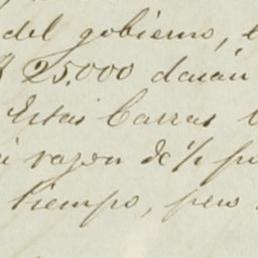 del gobierno,
$ 25.000 darán
Estas Carras
razon de ½ po
tiempo, pero